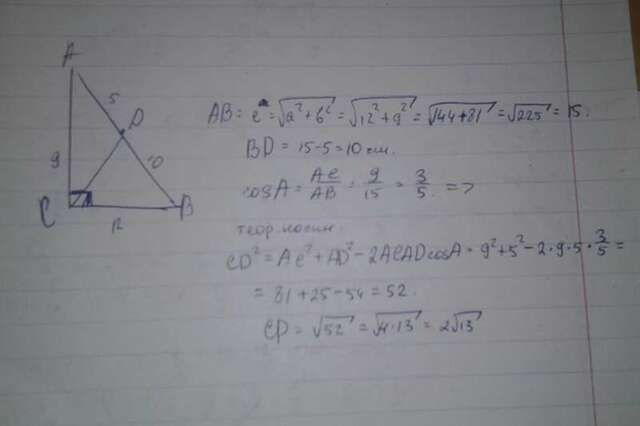 A
5
D
9
10
C
12
B
AB = c = √a²+b² = √12²+9² = √144+81 = √225 = 15.
BD = 15-5=10 см.
cosA = AC/AB = 9/15 = 3/5. =>
теор. косин.
CD² = AC²+AD²-2AC AD cosA = 9²+5²-2·9·5·3/5 =
= 81+25-54=52.
CD = √52 = √4·13 = 2√13